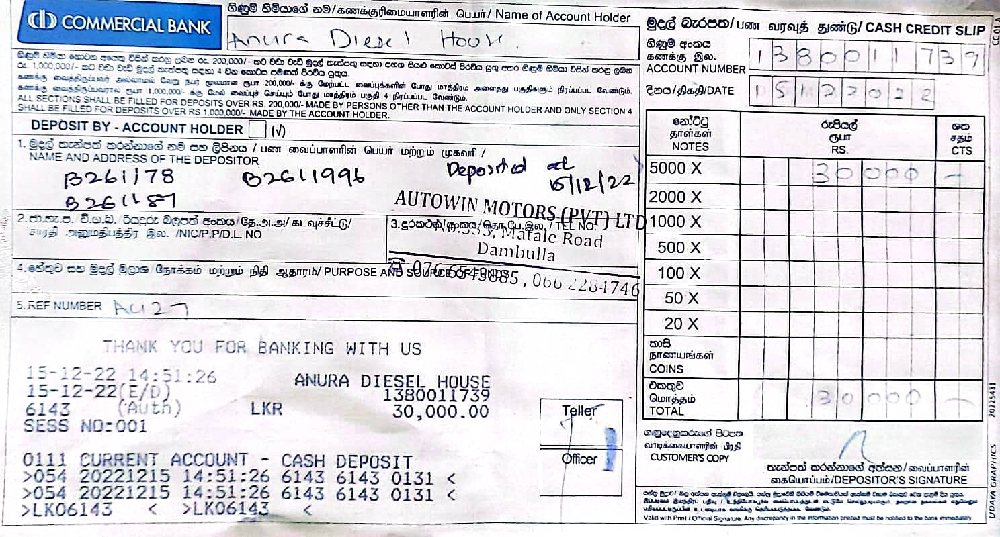 COMMERCIAL BANK
ගිණුම් හිමියාගේ නම/கணக்குரிமையாளரின் பெயர்/ Name of Account Holder
Anura Diesel House
මුදල් බැරපත/பண வரவுத் துண்டு/ CASH CREDIT SLIP
ගිණුම් අංකය
கணக்கு இல.
ACCOUNT NUMBER
1380011739
දිනය/திகதி/DATE
15122022
ALL SECTIONS SHALL BE FILLED FOR DEPOSITS OVER RS. 200,000/- MADE BY PERSONS OTHER THAN THE ACCOUNT HOLDER AND ONLY SECTION 4
SHALL BE FILLED FOR DEPOSITS OVER RS 1,000,000/- MADE BY THE ACCOUNT HOLDER.
DEPOSIT BY - ACCOUNT HOLDER (√)
1. මුදල් තැන්පත් කරන්නාගේ නම සහ ලිපිනය / பண வைப்பாளரின் பெயர் மற்றும் முகவரி /
NAME AND ADDRESS OF THE DEPOSITOR
Deposited at
15/12/22
B261178 B2611996
B261187
AUTOWIN MOTORS (PVT) LTD
Matale Road
Dambulla
066 2284746
/NIC/P.P/D.L NO
/TEL NO.
නෝට්ටු
தாள்கள்
NOTES
රුපියල්
ரூபா
RS.
ශත
சதம்
CTS
5000 X 30000 -
2000 X
1000 X
500 X
100 X
50 X
20 X
කාසි
நாணயங்கள்
COINS
එකතුව
மொத்தம்
TOTAL 30000 -
5. REF NUMBER
THANK YOU FOR BANKING WITH US
15-12-22 14:51:26 ANURA DIESEL HOUSE
15-12-22(E/D) 1380011739
6143 (Auth) LKR 30,000.00
SESS NO:001
Teller
Officer
0111 CURRENT ACCOUNT - CASH DEPOSIT
>054 20221215 14:51:26 6143 6143 0131 <
>054 20221215 14:51:26 6143 6143 0131 <
>LK06143 < >LK06143 <
ගනුදෙනුකරුගේ පිටපත
வாடிக்கையாளரின் பிரதி
CUSTOMER'S COPY
තැන්පත් කරන්නාගේ අත්සන/வைப்பாளரின்
கையொப்பம்/DEPOSITOR'S SIGNATURE
Valid with Print / Official Signature. Any discrepancy in the information printed must be notified to the bank immediately.
UDAYA GRAPHICS